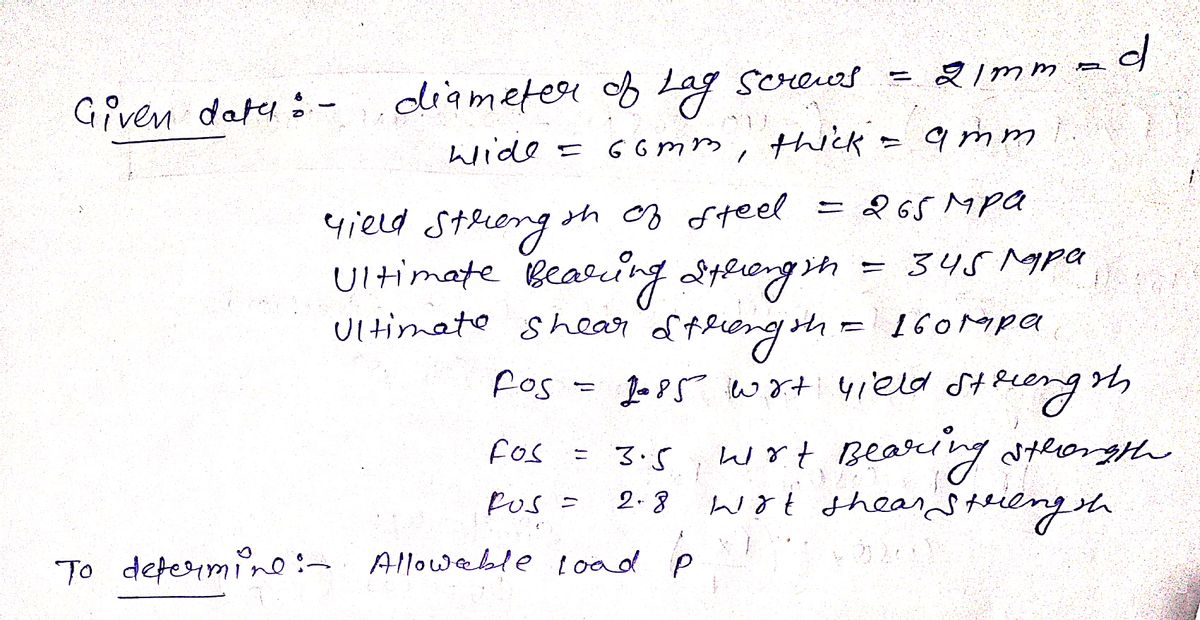 Given data :- diameter of Lag Screws = 21mm = d
wide = 66mm, thick = 9mm
yield strength of steel = 265 MPa
Ultimate Bearing Strength = 345 Mpa
Ultimate shear strength = 160Mpa
fos = 1.85 wrt yield strength
fos = 3.5 wrt Bearing strength
fos = 2.8 wrt shear strength
To determine :- Allowable load P